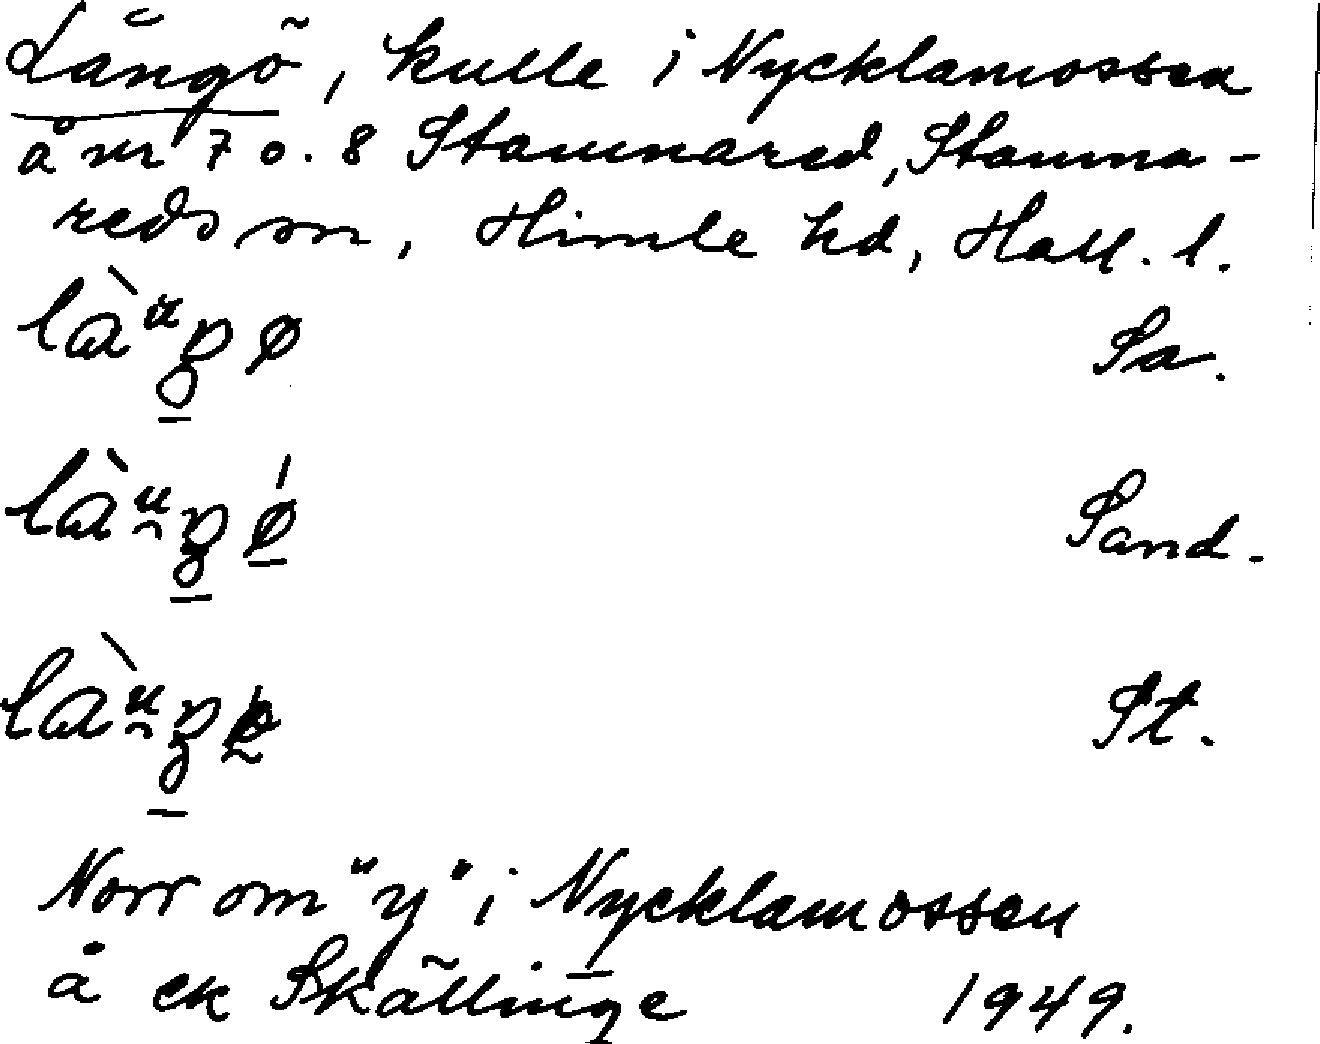 Långö, kulle i Nycklamossen
å nr 7 o. 8 Stamnared, Stamna-
reds sn, Himle hd, Hall. l.
Sa.
Sand.
St.
Norr om "y" i Nycklamossen
å ek Skällinge 1949.